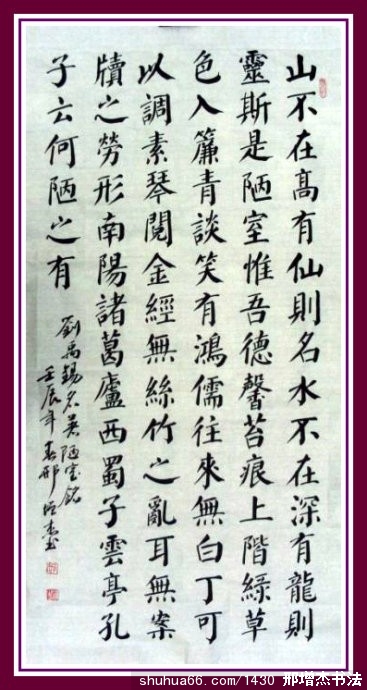 山不在髙有仙則名水不在深有龍則
靈斯是陋室惟吾德馨苔痕上階綠草
色入簾青談笑有鴻儒往來無白丁可
以調素琴閱金經無絲竹之亂耳無案
牘之勞形南陽諸葛廬西蜀子雲亭孔
子云何陋之有
劉禹錫名陋室銘
壬辰年春邢增杰书
shuhua66.com/1430 邢增杰书法